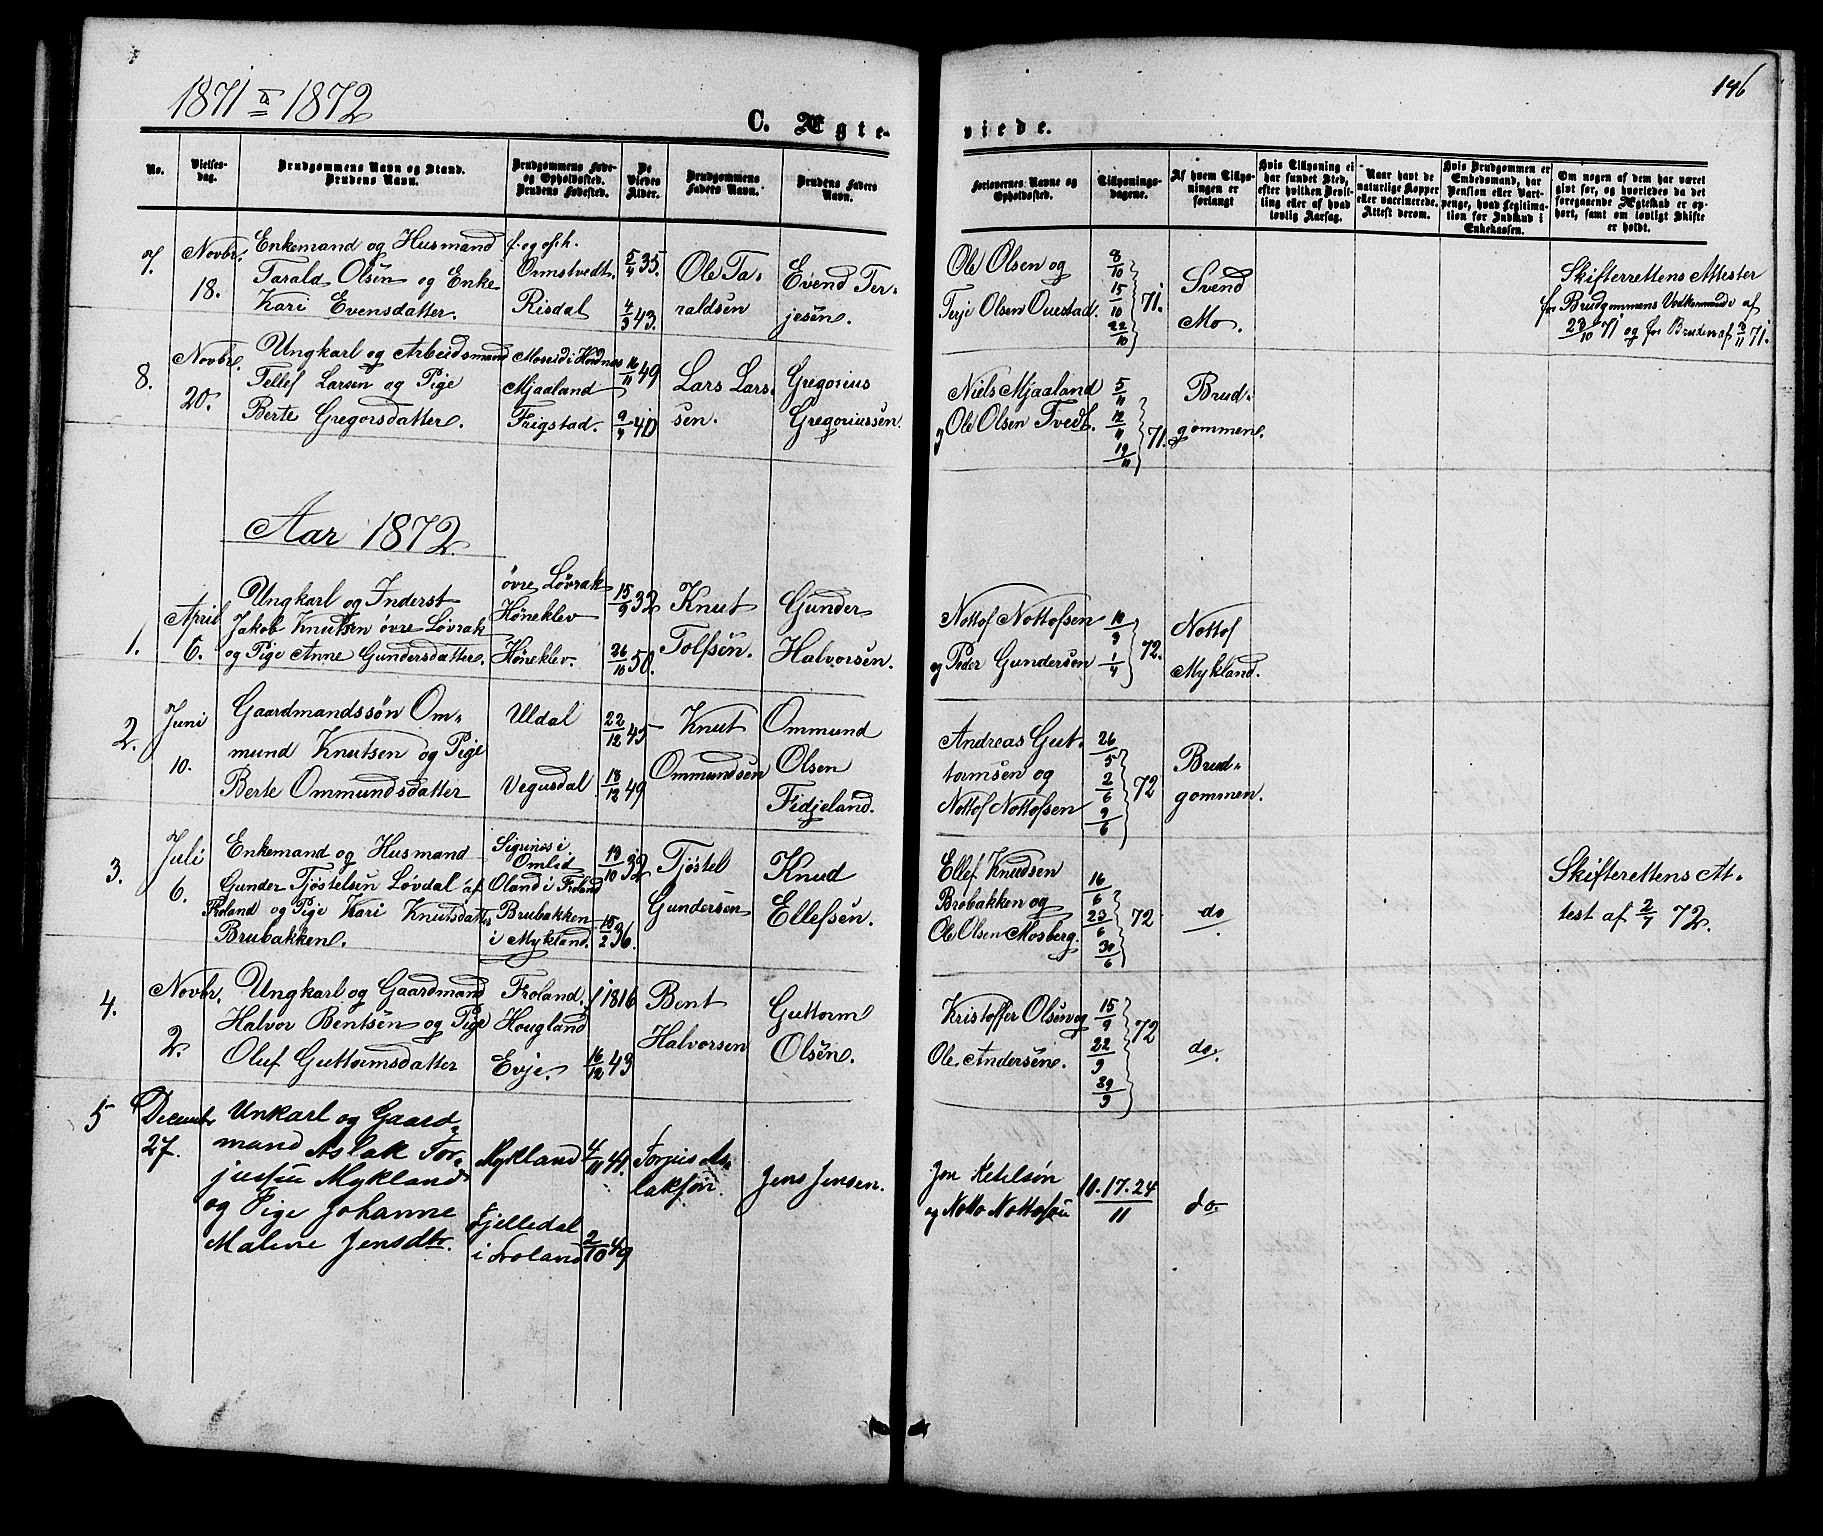 1871 & 1872
146
C. Ægteviede.
No.
Vielses-
dag.
Brudgommens Navn og Stand.
Brudens Navn.
Brudgommens Føde-
og Opholdssted.
Brudens Fødested.
De
Viedes
Alder.
Brudgommens
Faders Navn.
Brudens Faders
Navn.
Forlovernes Navne og
Opholdssted.
Tillysnings-
dagene.
Af hvem Tillys-
ningen er
forlangt
Hvis Tillysning ei
har fundet Sted,
efter hvilken Bevil-
ling eller af hvad
lovlig Aarsag.
Naar havt de
naturlige Kopper
eller vaccinerede.
Attest derom.
Hvis Brudgommen er
Enkemand, har
Pension eller Vart-
penge, hvad Legitima-
tion for Indskud i
Enkekassen.
Om nogen af dem har været
givt før, og hvorledes da det
foregaaende Ægteskab er op-
hørt, samt om lovligt Skifte
er holdt.
7.
Novbr.
18.
Enkemand og Husmand
Tarald Olsen og Enke
Kari Evensdatter.
f. og oph.
Ormstvedt
Risdal
5/4 35.
4/9 43.
Ole Ta-
raldsen
Evend Ter-
jesen.
Ole Olsen og
Terje Olsen Ouestad.
8/10
15/10
22/10
71.
Svend
Mo.
Skifterettens Attester
for Brudgommens Vedkommende af
23/10 71 og for Bruden af 3/11 71.
8.
Novbr.
20.
Ungkarl og Arbeidsmand
Tellef Larsen og Pige
Berte Gregorsdatter.
Moseid i Hordnæs
Mjaaland
Frigstad.
16/11 49
9/7 40
Lars Lars-
sen.
Gregorius
Gregoriussen.
Niels Mjaaland
og Ole Olsen Tvedt.
5/11
12/11
19/11
71.
Brud-
gommen.
Aar 1872
1.
April
6.
Ungkarl og Inderst
Jakob Knutsen øvre Løvrak
og Pige Anne Gundersdatter.
øvre Løvrak
Høneklev
Høneklev.
15/9 32
26/10 50.
Knut
Tolfsen.
Gunder
Halvorsen.
Nottof Nottofsen
og Peder Gundersen
1/4
72.
Nottof
Mykland.
2.
Juni
10.
Gaardmandssøn Om-
mund Knutsen og Pige
Berte Ommundsdatter
Uldal
Vegusdal
22/12 45
18/12 49
Knut
Ommundsen
Ommund
Olsen
Fidjeland.
Andreas Gut-
tormsen og
Nottof Nottofsen
26/5
2/6
9/6
72
Brud-
gommen.
3.
Juli
6.
Enkemand og Husmand
Gunder Tjøstelsen Løvdal af
Froland og Pige Kari Knutsdatter
Brubakken.
Sigsnæs i
Omlid
Oland i Froland
Brubakken
i Mykland.
18/10 32
15/2 36.
Tjøstel
Gundersen
Knud
Ellefsen.
Ellef Knudsen
Brobakken og
Ole Olsen Mosberg.
16/6
23/6
30/6
72
do
Skifterettens At-
test af 2/7 72.
4.
Novbr.
2.
Ungkarl og Gaardmand
Halvor Bentsen og Pige
Oluf Guttormsdatter
Froland.
Hougland
Evje.
f 1816
16/12 43
Bent
Halvorsen
Guttorm
Olsen.
Kristoffer Olsen og
Ole Andersen.
15/9
22/9
29/9
72
do.
5
Decembr
27.
Unkarl og Gaard-
mand Aslak Tor-
jussen Mykland
og Pige Johanne
Malene Jensdtr.
Mykland
Fjelledal
i Froland
4/11 41.
2/10 49
Torjus As-
laksøn.
Jens Jensen.
Jon Ketilsøn
og Notto Nottofsen
10. 17. 24
11
do.